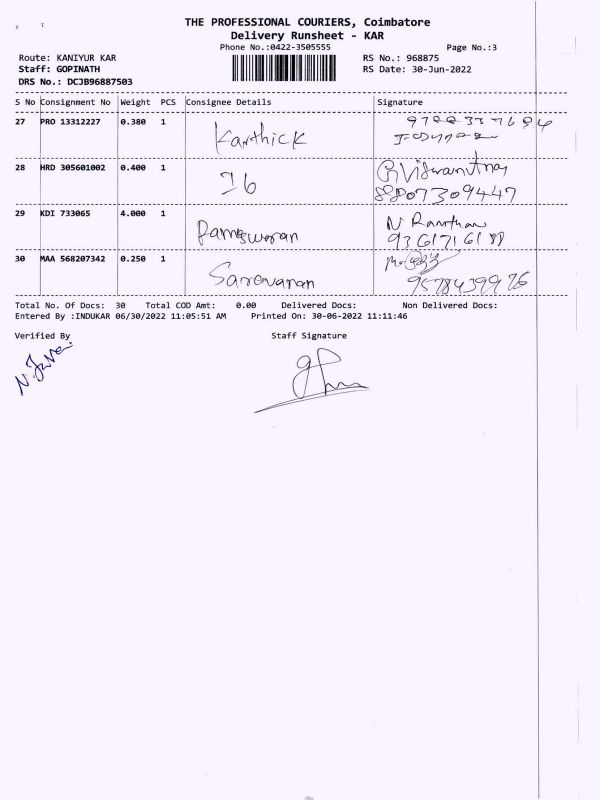 THE PROFESSIONAL COURIERS, Coimbatore
Delivery Runsheet - KAR
Phone No.:0422-3505555 Page No.:3
Route: KANIYUR KAR RS No.: 968875
Staff: GOPINATH RS Date: 30-Jun-2022
DRS No.: DCJB96887503
S No Consignment No Weight PCS Consignee Details Signature
27 PRO 13312227 0.380 1 Karthick
28 HRD 305601002 0.400 1 G Viswanathan
88807309447
29 KDI 733065 4.000 1 Rameswaran N
9361716188
30 MAA 568207342 0.250 1 Saravanan
9578439976
Total No. Of Docs: 30 Total COD Amt: 0.00 Delivered Docs: Non Delivered Docs:
Entered By :INDUKAR 06/30/2022 11:05:51 AM Printed On: 30-06-2022 11:11:46
Verified By Staff Signature